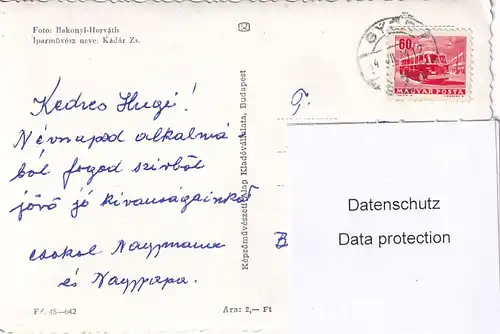 Foto: Bakonyi-Horváth
Iparművész neve: Kádár Zs.
Kedves Hugi!
Névnapod alkalmá
ból fogod szivből
jövő jó kivánságainkat
csokol Nagymama
és Nagypapa.
FV. 48—642
Ára: 2,— Ft
Képzőművészeti Alap Kiadóvállalata, Budapest
60f
MAGYAR POSTA
T.
B
Datenschutz
Data protection